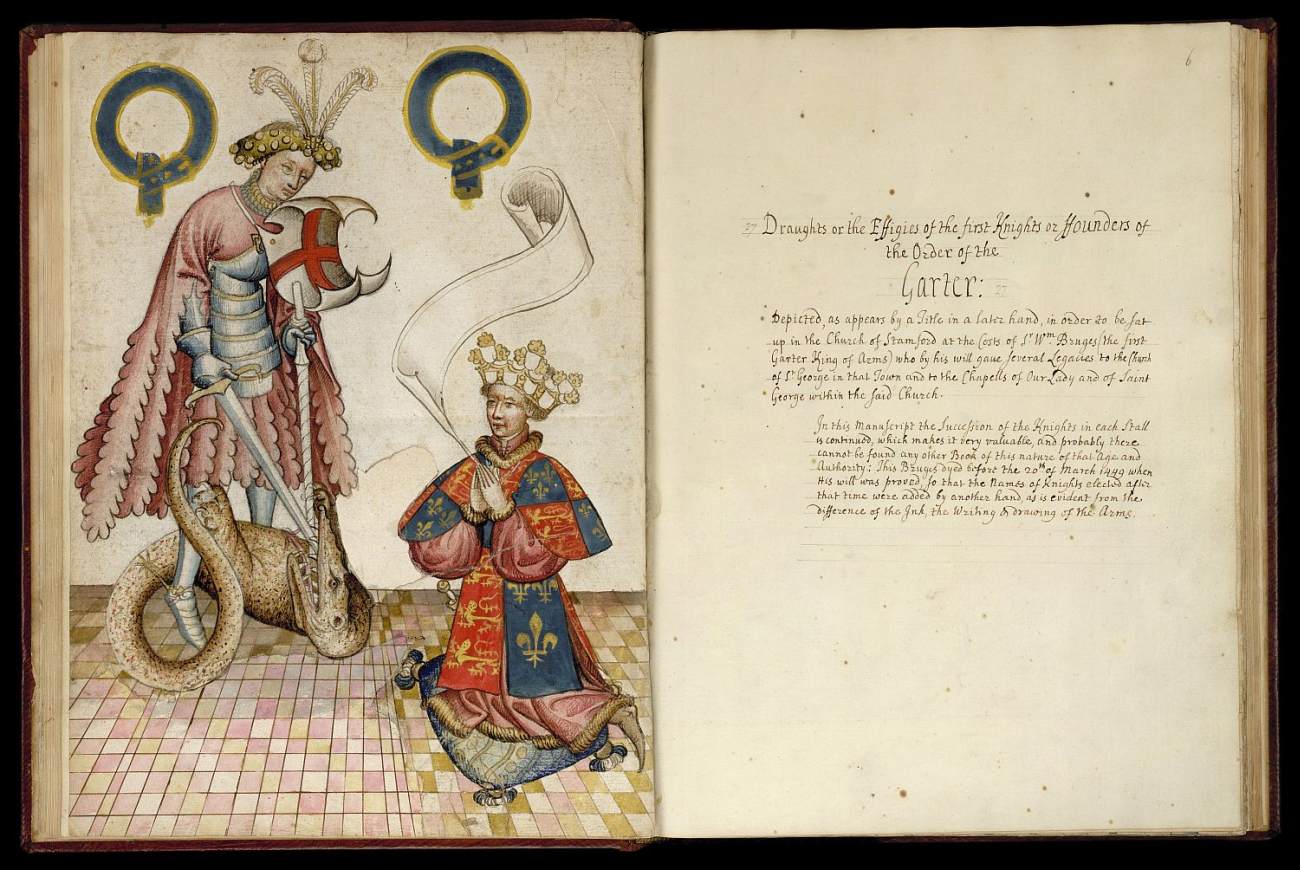 6
Draughts or the Effigies of the first Knights or Founders of
the Order of the
Garter:
Depicted, as appears by a Title in a later hand, in order to be sat
up in the Church of Stamford at the Costs of Sr Wm. Bruges (the first
Garter King of Arms) who by his will gave several Legacies to the Church
of St George in that Town and to the Chapells of Our Lady and of Saint
George within the said Church.
In this Manuscript the Succession of the Knights in each Stall
is continued, which makes it very valuable, and probably there
cannot be found any other Book of this nature of that Age and
Authority: This Bruges dyed before the 20th of March 1449 when
His will was proved, so that the Names of Knights elected after
that time were added by another hand, as is evident from the
difference of the Ink, the Writing & drawing of the Arms.